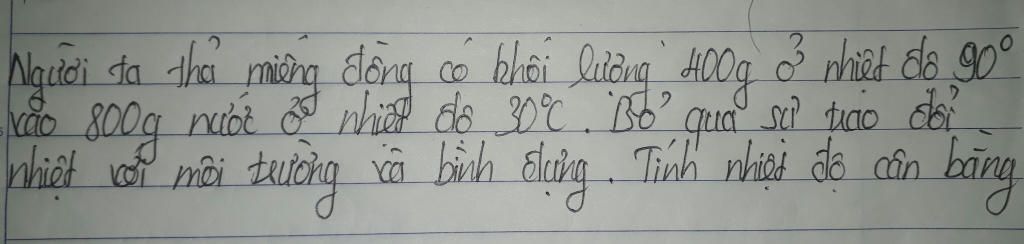 Người ta thả miếng đồng có khối lượng 400g ở nhiệt độ 90°
vào 800g nước ở nhiệt độ 30°C. Bỏ qua sự trao đổi
nhiệt với môi trường và bình đựng. Tính nhiệt độ cân bằng